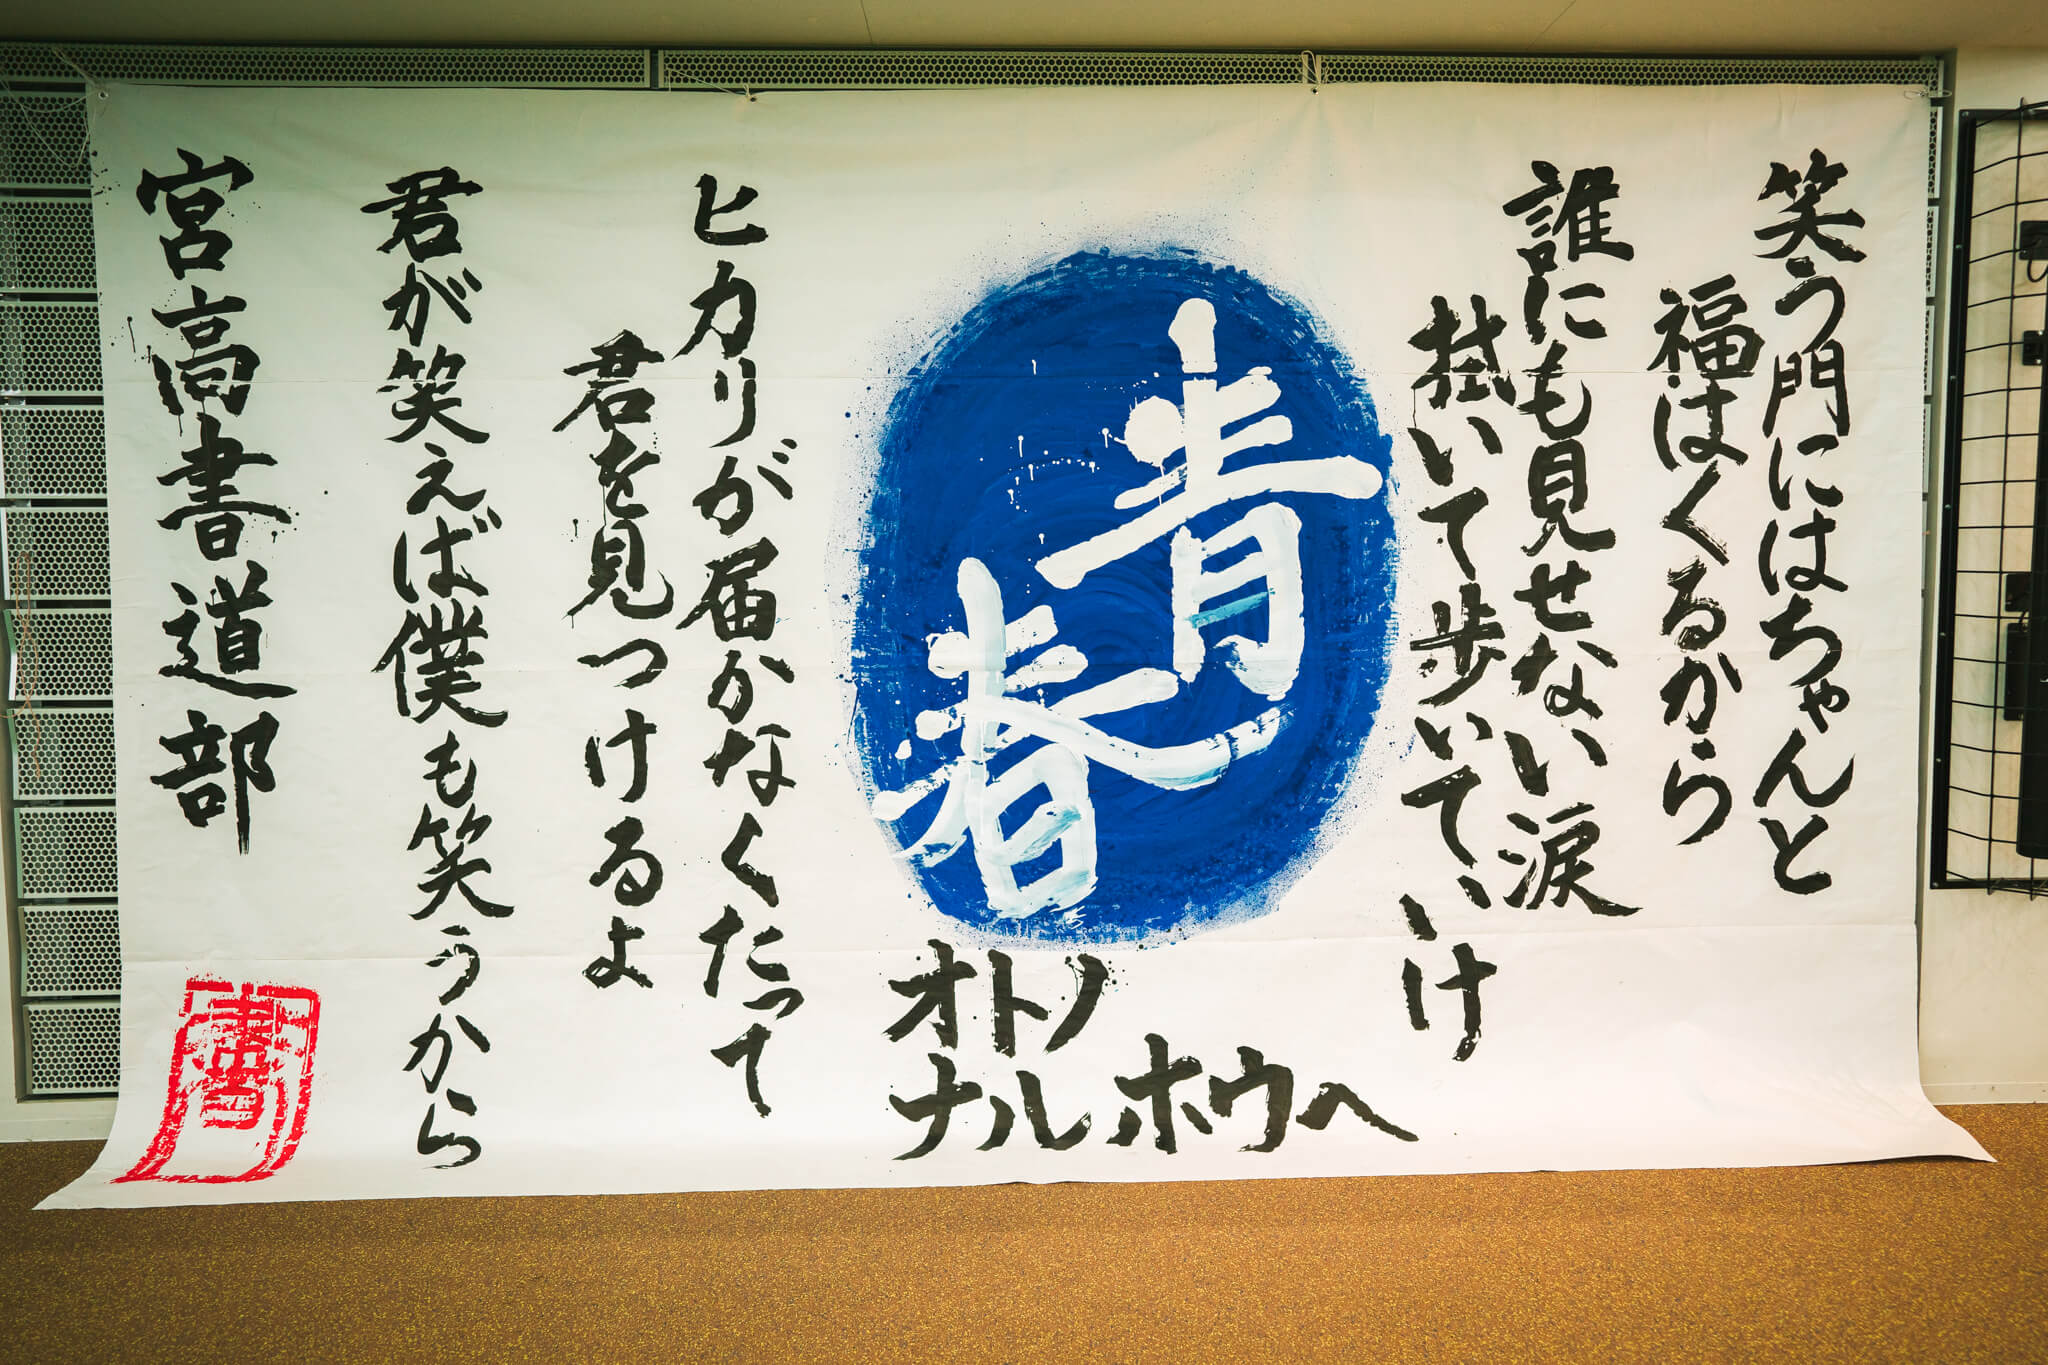 笑う門にはちゃんと
福はくるから
誰にも見せない涙
拭いて歩いていけ
青春
オトノ
ナルホウヘ
ヒカリが届かなくたって
君を見つけるよ
君が笑えば僕も笑うから
宮高書道部